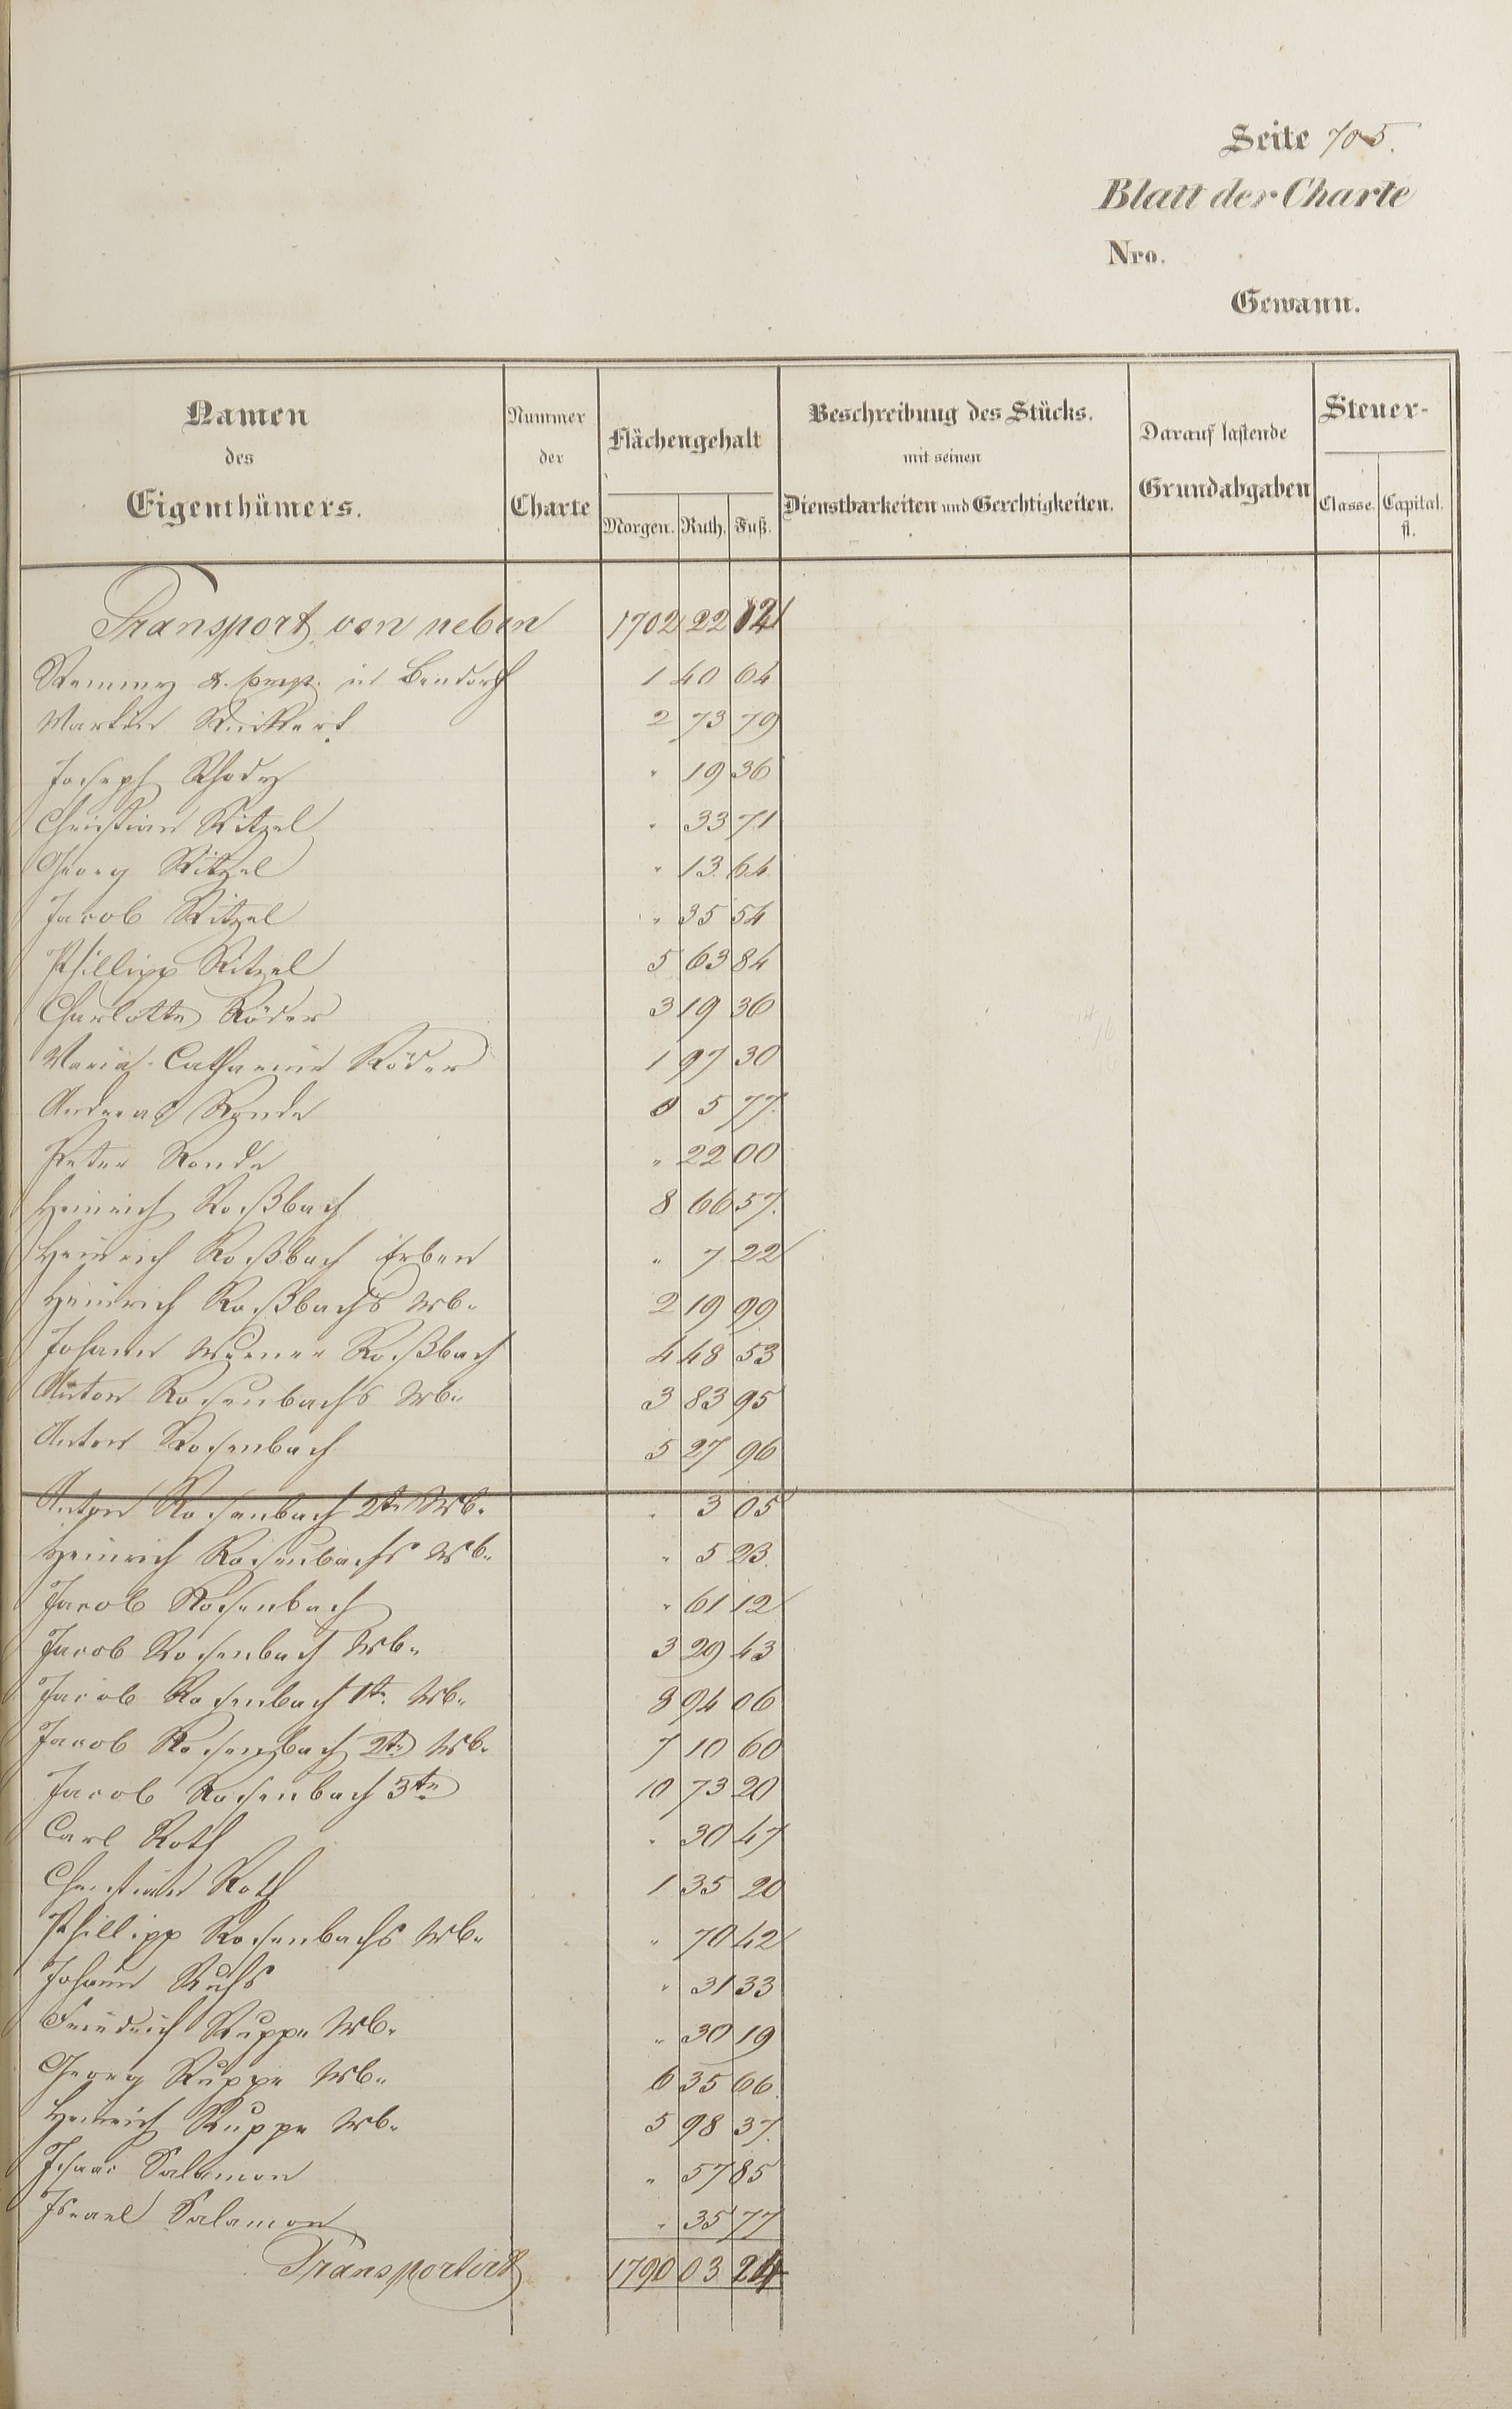 Seite 705.
Blatt der Charte
Nro.
Gewann.
Namen des Eigenthümers. Nummer der Charte Flächengehalt Morgen. Ruth. Fuß. Beschreibung des Stücks. mit seinen Dienstbarkeiten und Gerechtigkeiten. Darauf lastende Grundabgaben Steuer- Classe. Capital. fl.
Transport von neben 1702 22 12
Remmy & Comp. in Bendorf 1 40 64
Martin Reickert 2 73 79
Joseph Rhody " 19 36
Christian Ritzel " 33 71
Georg Ritzel " 13 64
Jacob Ritzel " 35 54
Phillipp Ritzel 5 63 84
Charlotte Röder 3 19 36
Maria Catharine Röder 1 97 30
Andreas Ronde 0 5 77
Peter Ronde " 22 00
Heinrich Roßbach 8 66 57
Heinrich Roßbach Erben " 7 22
Heinrich Roßbachs Wb. 2 19 99
Johann Werner Roßbach 4 48 53
Anton Rosenbachs Wb. 3 83 95
Anton Rosenbach 5 27 96
Anton Rosenbach 2te Wb. " 3 05
Heinrich Rosenbachs Wb. " 5 23
Jacob Rosenbach " 61 12
Jacob Rosenbach Wb. 3 29 43
Jacob Rosenbach 1te Wb. 8 94 06
Jacob Rosenbach 2te Wb. 7 10 60
Jacob Rosenbach 3te 10 73 20
Carl Roth " 30 47
Christian Roth 1 35 20
Phillipp Rosenbachs Wb. " 70 42
Johann Ruhs " 31 33
Friedrich Ruppe Wb. " 30 19
Georg Ruppe Wb. 6 35 66
Heinrich Ruppe Wb. 5 98 37
Isaac Salamon " 57 85
Israel Salamon " 35 77
Transportirt 1790 03 24